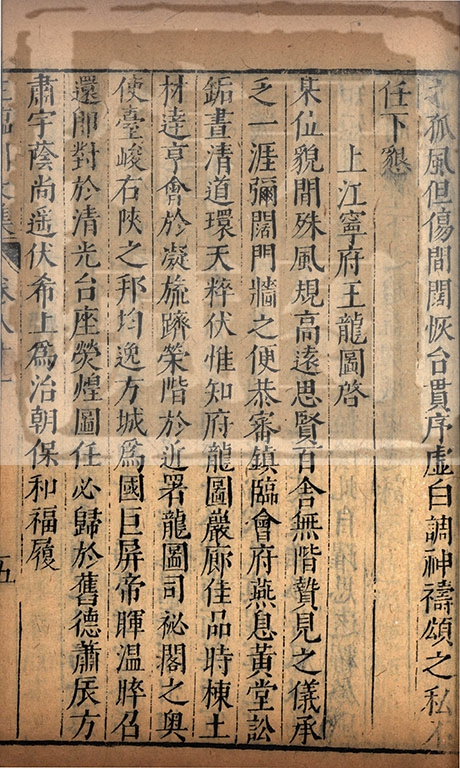 孤風但傷間闊恢台貫序虛白調神禱頌之私不
任下懇
上江寧府王龍圖啓
某位貌間殊風規高遠思賢百舍無階贄見之儀承
乏一涯彌闊門牆之便恭審鎮臨會府燕息黃堂訟
銗晝清道環天粹伏惟知府龍圖嚴廊佳品時棟土
材逹亨會於凝旒躋榮階於近署龍圖司祕閣之奥
使臺峻右陜之邦均逸方城爲國巨屏帝暉温睟召
還卽對於清光台座熒煌圖任必歸於舊德蕭辰方
肅宇蔭尚遥伏希上爲治朝保和福履
五